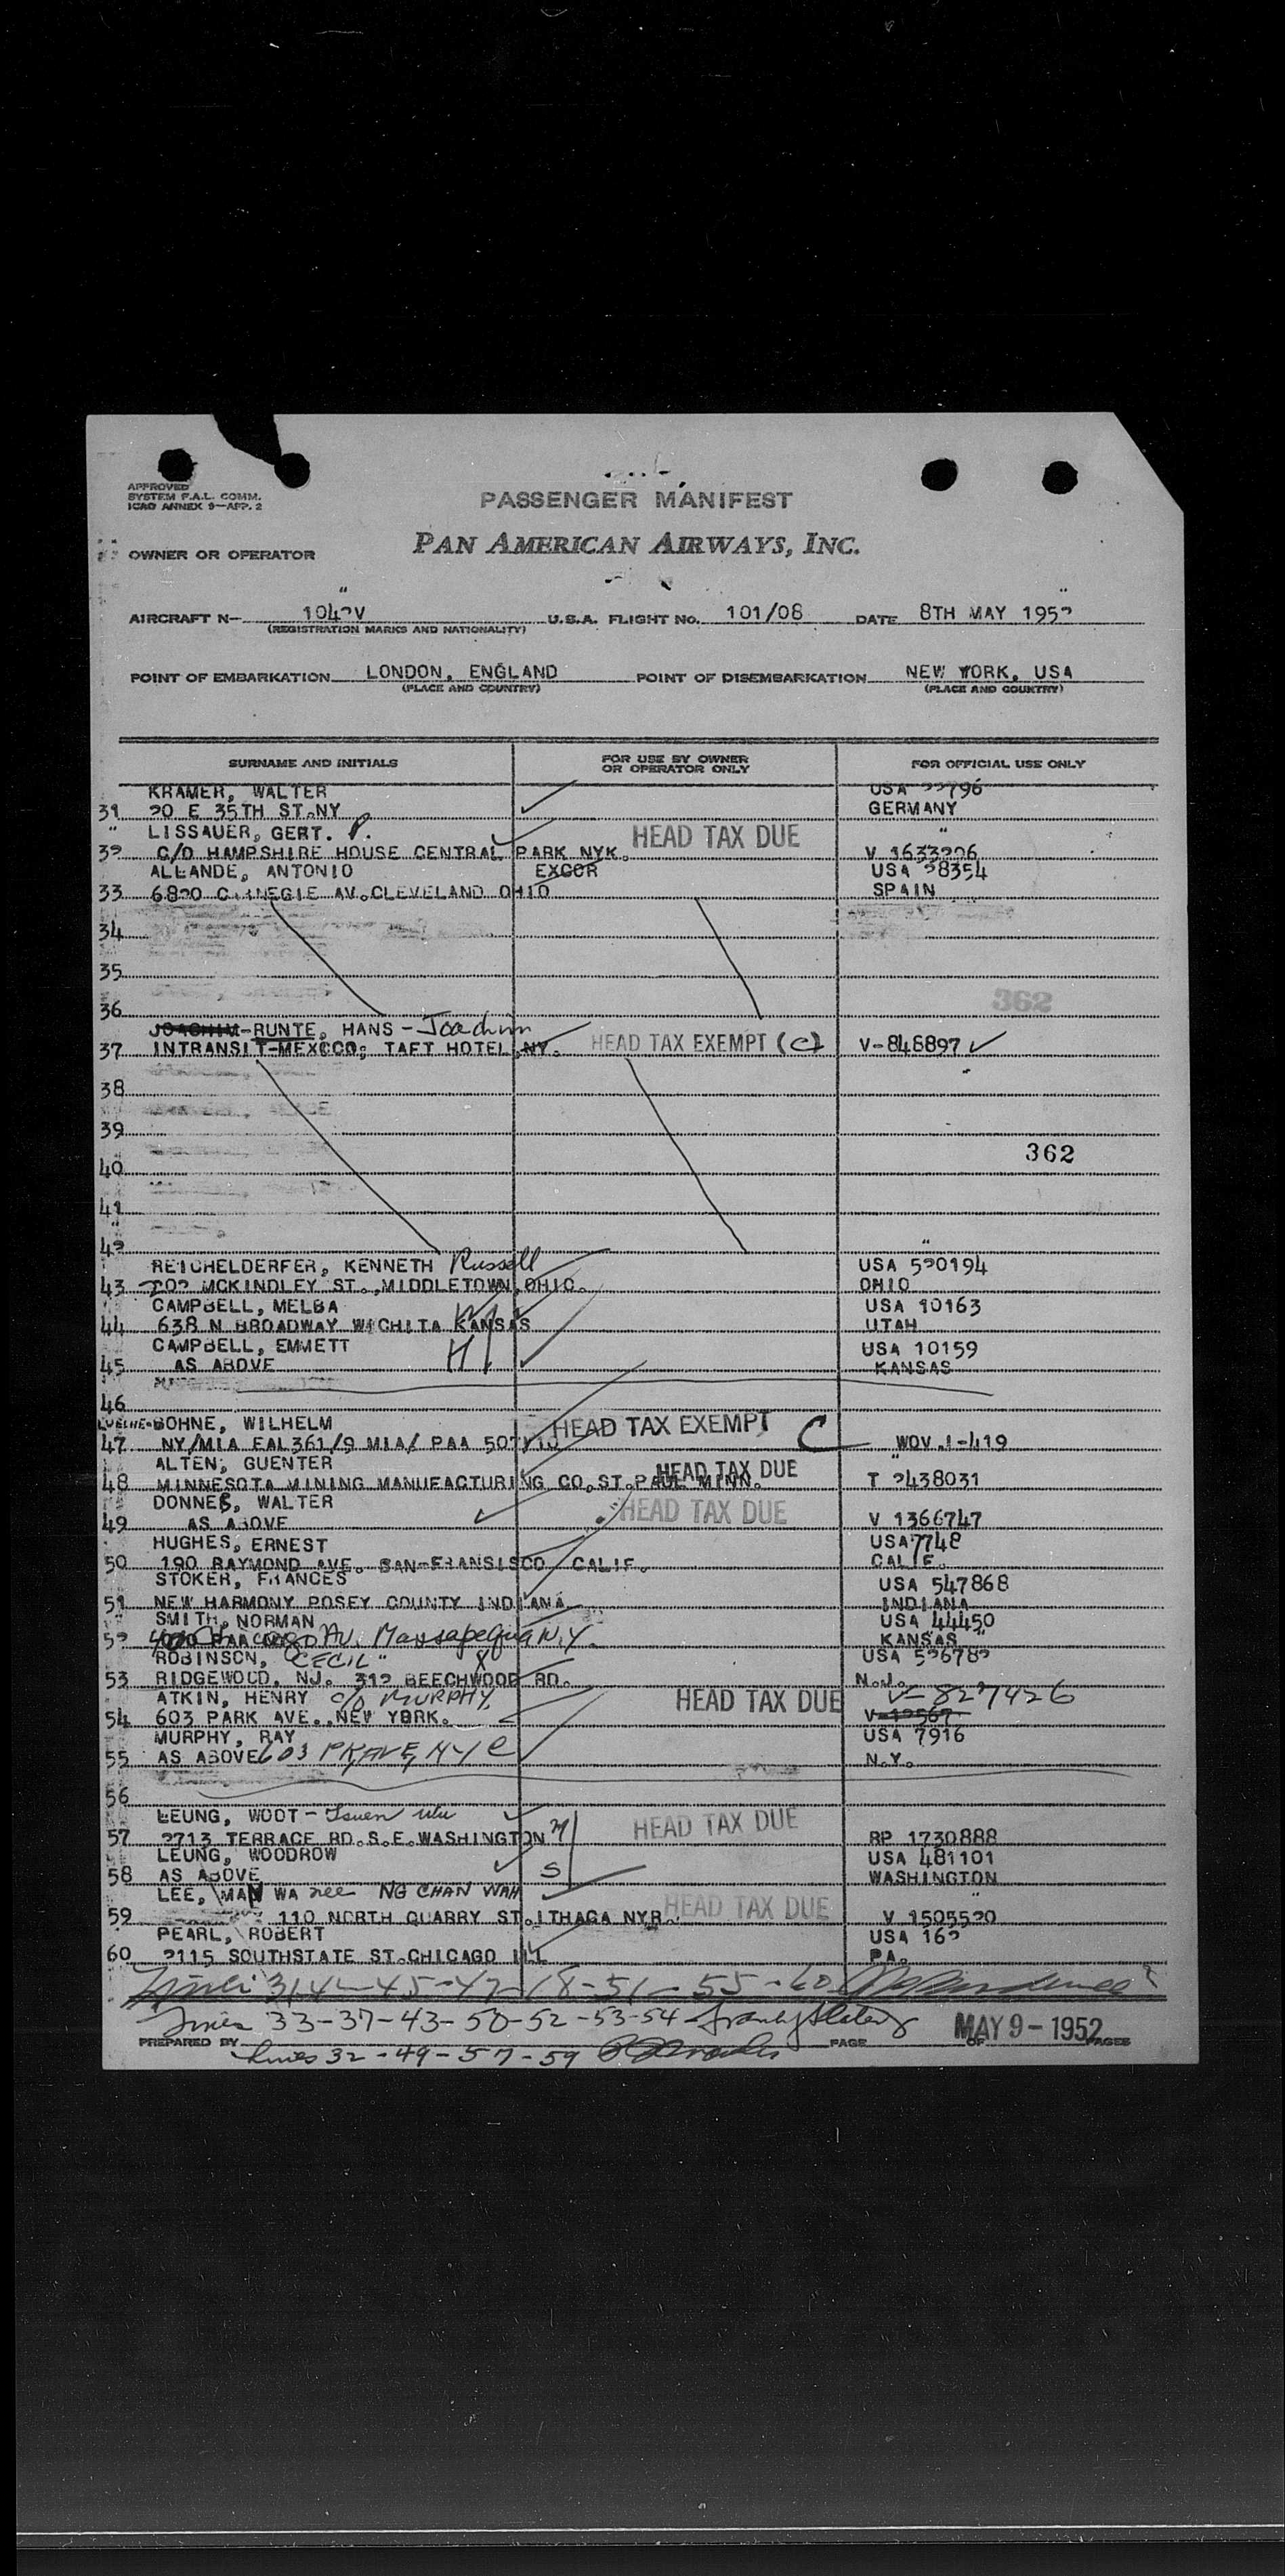 APPROVED
SYSTEM F.A.L. COMM.
ICAO ANNEX 9—APP. 2
PASSENGER MANIFEST
OWNER OR OPERATOR PAN AMERICAN AIRWAYS, INC.
AIRCRAFT N- 1042V U.S.A. FLIGHT No. 101/08 DATE 8TH MAY 1952
(REGISTRATION MARKS AND NATIONALITY)
POINT OF EMBARKATION LONDON, ENGLAND POINT OF DISEMBARKATION NEW YORK, USA
(PLACE AND COUNTRY) (PLACE AND COUNTRY)
SURNAME AND INITIALS FOR USE BY OWNER OR OPERATOR ONLY FOR OFFICIAL USE ONLY
KRAMER, WALTER USA 22796
31 20 E 35TH ST.NY GERMANY
LISSAUER, GERT. P. HEAD TAX DUE
32 C/O HAMPSHIRE HOUSE CENTRAL PARK NYK. V 1633206
ALLANDE, ANTONIO EXCOR USA 28354
33 6820 CARNEGIE AV.CLEVELAND OHIO SPAIN
34
35
36 362
JOACHIM-RUNTE, HANS - Joachim
37 INTRANSIT-MEXCCO; TAFT HOTEL,NY. HEAD TAX EXEMPT (C) V-848897
38
39
40 362
41
42
REICHELDERFER, KENNETH Russell USA 520194
43 202 MCKINDLEY ST.,MIDDLETOWN,OHIO. OHIO
CAMPBELL, MELBA USA 10163
44 638 N BROADWAY WICHITA KANSAS UTAH
CAMPBELL, EMMETT H USA 10159
45 AS ABOVE KANSAS
46
BOHNE, WILHELM HEAD TAX EXEMPT C
47 NY/MIA EAL361/9 MIA/ PAA WOV.I-419
ALTEN, GUENTER HEAD TAX DUE
48 MINNESOTA MINING MANUFACTURING CO.ST.PAUL MINN. T 2438031
DONNER, WALTER HEAD TAX DUE
49 AS ABOVE V 1366747
HUGHES, ERNEST USA 7748
50 190 RAYMOND AVE. SAN-FRANSISCO CALIF. CALIF.
STOKER, FRANCES USA 547868
51 NEW HARMONY POSEY COUNTY INDIANA INDIANA
SMITH, NORMAN USA 44450
52 Av. Massapequa N.Y. KANSAS
ROBINSON, "CECIL" X USA 526782
53 RIDGEWOOD, NJ. 312 BEECHWOOD RD. N.J.
ATKIN, HENRY c/o MURPHY HEAD TAX DUE V-827426
54 603 PARK AVE..NEW YORK. V-12567
MURPHY, RAY USA 7916
55 AS ABOVE 603 PK AVE, NYC N.Y.
56
LEUNG, WOOT - HEAD TAX DUE
57 2713 TERRACE RD.S.E.WASHINGTON RP 1730888
LEUNG, WOODROW USA 481101
58 AS ABOVE S WASHINGTON
LEE, MAN WA nee NG CHAN WAH HEAD TAX DUE
59 110 NORTH QUARRY ST.ITHAGA NYR. V 1505520
PEARL, ROBERT USA 162
60 2115 SOUTHSTATE ST.CHICAGO ILL PA.
Lines 33-37-43-50-52-53-54
PREPARED BY PAGE OF PAGES
MAY 9 - 1952
Lines 32-49-57-59